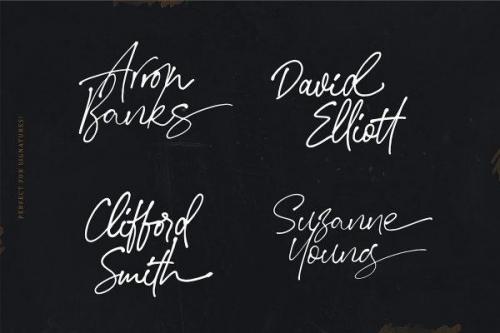 Arron
Banks
David
Elliott
Clifford
Smith
Suzanne
Young
PERFECT FOR SIGNATURES!